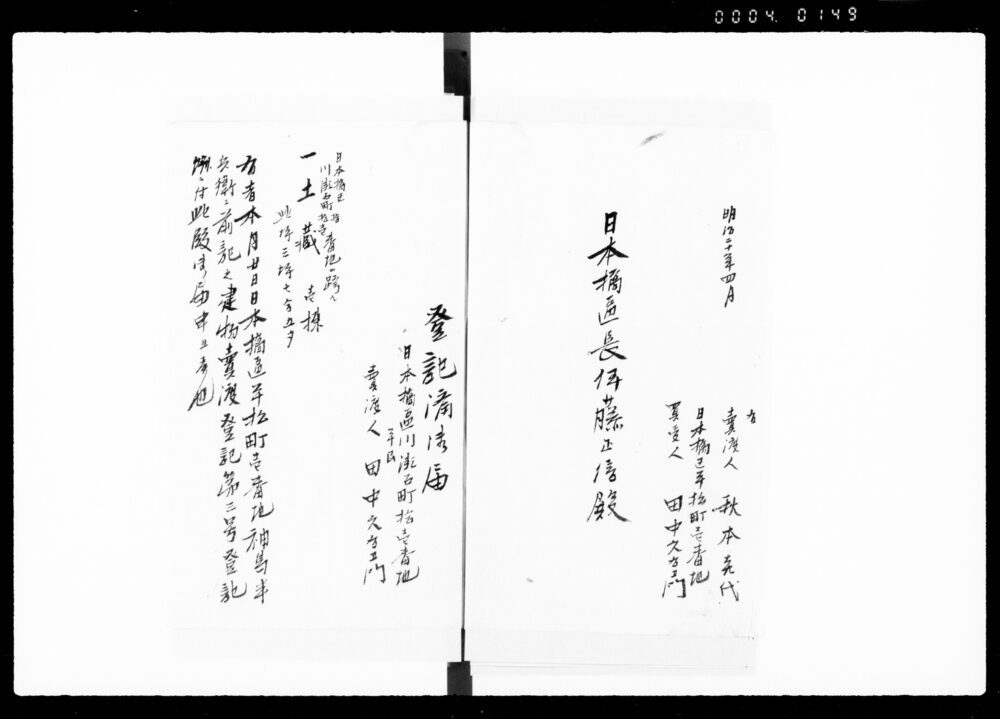 0004 0149
明治二十年四月
右
賣渡人 秋本花代
日本橋区平松町壱番地
買受人 田中久右衛門
日本橋區長伊藤正信殿
登記済御届
日本橋區川瀬石町拾壱番地
平民
賣渡人 田中久右衛門
日本橋区
川瀬石町拾壱番地ニ跨ル
一土藏 壱棟
此坪三坪七合五勺
右者本月廿日日本橋區平松町壱番地神馬半
兵衛ニ前記之建物賣渡登記第三号登記
済ニ付此段御届申上候也